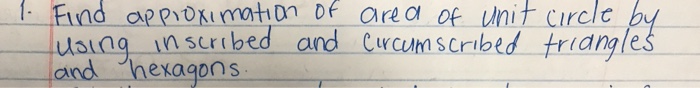 1. Find approximation of area of unit circle by
using inscribed and circumscribed triangles
and hexagons.